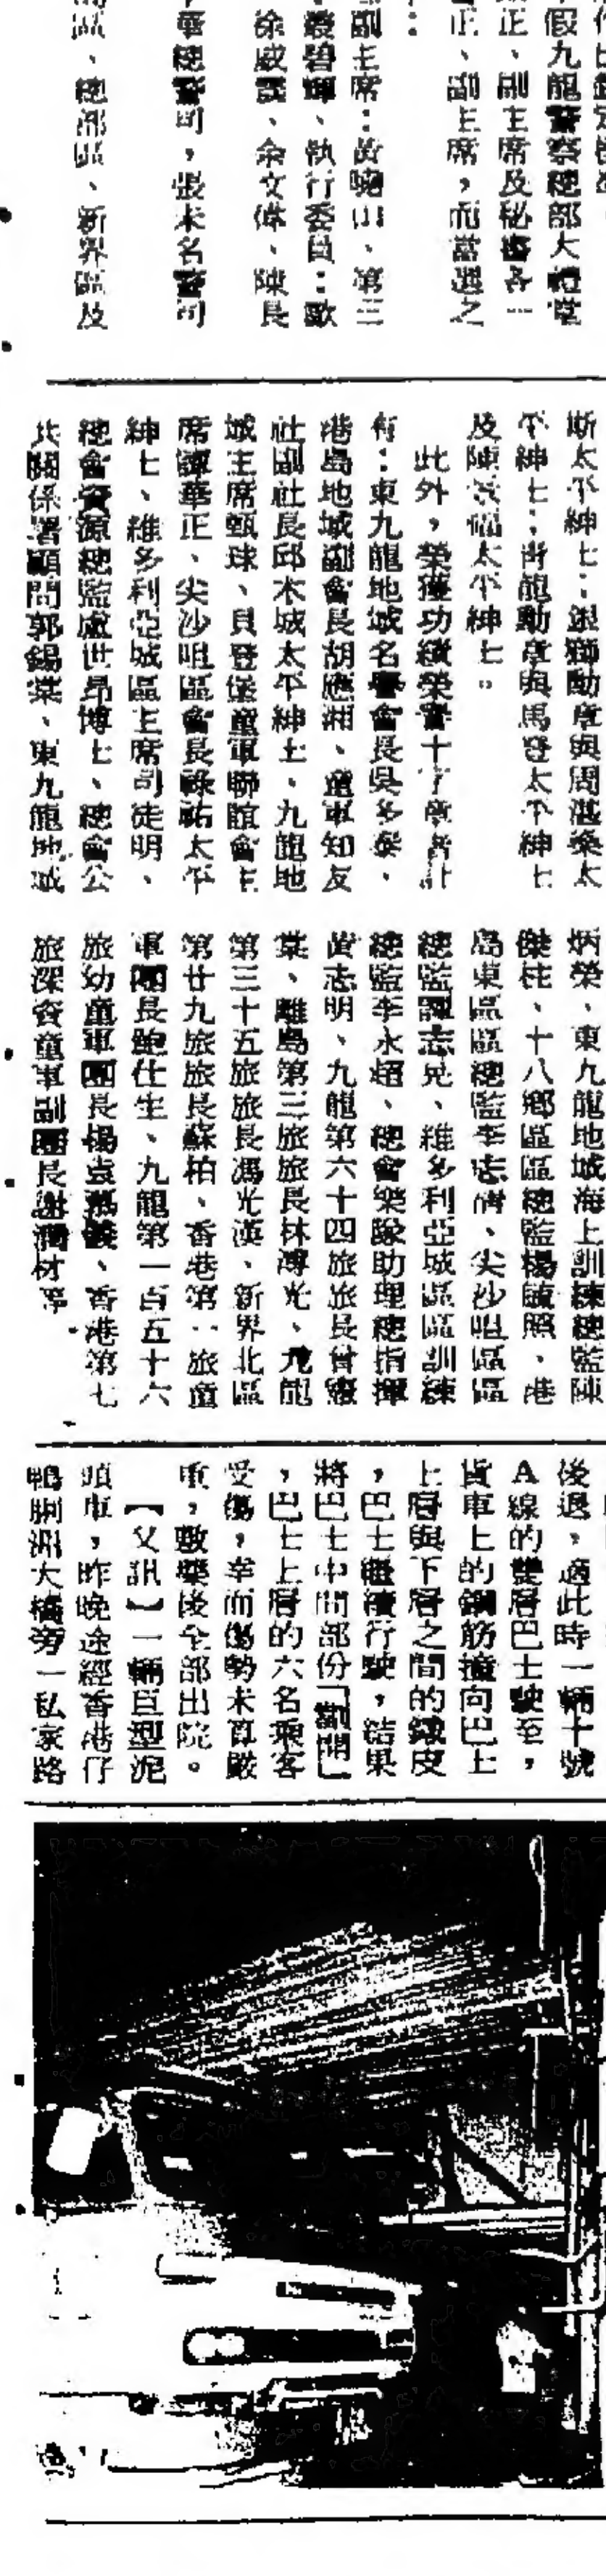 假九龍警察總部大禮堂
正、副主席及秘書各一
正、副主席，而當選之
：
副主席：黃曉山、第三
碧輝、執行委員：歐
徐威、余文偉、陳長
華總警司，張未名警司
區、總部區、新界區及
斯太平紳士；銀獅勳章與周湛燊太
平紳士；青龍勳章與馬登太平紳士
及陳 太平紳士。
此外，榮獲功績榮譽十字章者計
有：東九龍地域名譽會長吳多泰、
港島地域副會長胡應湘、童軍知友
社副社長邱木城太平紳士、九龍地
域主席甄球、貝登堡童軍聯誼會主
席譚華正、尖沙咀區會長祿祐太平
紳士、維多利亞城區主席司徒明、
總會資源總監盧世昂博士、總會公
共關係署顧問郭錫棠、東九龍地域
炳榮、東九龍地域海上訓練總監陳
傑柱、十八鄉區區總監楊 照、港
島東區區總監李志 、尖沙咀區區
總監譚志 、維多利亞城區區訓練
總監李永超、總會樂隊助理總指揮
黃志明、九龍第六十四旅旅長曾憲
棠、離島第三旅旅長林溥光、九龍
第三十五旅旅長馮光漢、新界北區
第廿九旅旅長蘇柏、香港第一旅童
軍團長鮑仕生、九龍第一百五十六
旅幼童軍團長楊袁 、香港第七
旅深資童軍副團長謝 材等。
後退，適此時一輛十號
A線的雙層巴士駛至，
貨車上的鋼筋撞向巴士
上層與下層之間的鐵皮
，巴士繼續行駛，結果
將巴士中間部份「劏開」
，巴士上層的六名乘客
受傷，幸而傷勢未算嚴
重，敷藥後全部出院。
【又訊】一輛巨型泥
頭車，昨晚途經香港仔
鴨脷洲大橋旁一私家路